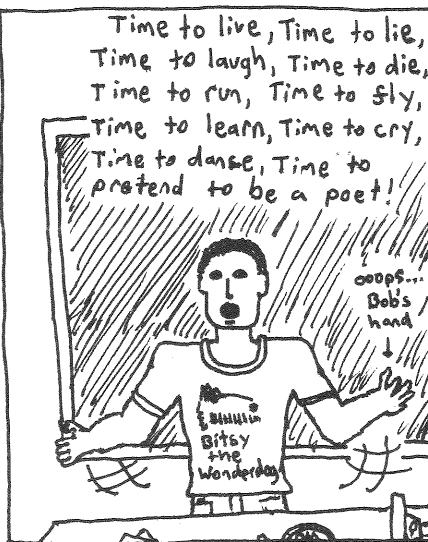 Time to live, Time to lie,
Time to laugh, Time to die,
Time to run, Time to fly,
Time to learn, Time to cry,
Time to danse, Time to
pretend to be a poet!
ooops...
Bob's
hand
Bitsy
the
Wonderdog